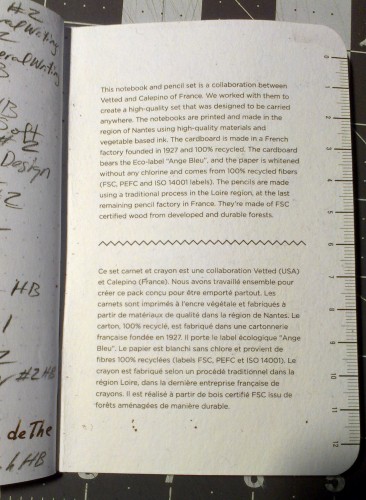 #2
eralWriting
2
eralWriting
B
HB
Soft
#2
Design
#2
HB
1
2
#2HB
deThe
HB
This notebook and pencil set is a collaboration between
Vetted and Calepino of France. We worked with them to
create a high-quality set that was designed to be carried
anywhere. The notebooks are printed and made in the
region of Nantes using high-quality materials and
vegetable based ink. The cardboard is made in a French
factory founded in 1927 and 100% recycled. The cardboard
bears the Eco-label "Ange Bleu", and the paper is whitened
without any chlorine and comes from 100% recycled fibers
(FSC, PEFC and ISO 14001 labels). The pencils are made
using a traditional process in the Loire region, at the last
remaining pencil factory in France. They're made of FSC
certified wood from developed and durable forests.
Ce set carnet et crayon est une collaboration Vetted (USA)
et Calepino (France). Nous avons travaillé ensemble pour
créer ce pack conçu pour être emporté partout. Les
carnets sont imprimés à l'encre végétale et fabriqués à
partir de matériaux de qualité dans la région de Nantes. Le
carton, 100% recyclé, est fabriqué dans une cartonnerie
française fondée en 1927. Il porte le label écologique "Ange
Bleu". Le papier est blanchi sans chlore et provient de
fibres 100% recyclées (labels FSC, PEFC et ISO 14001). Le
crayon est fabriqué selon un procédé traditionnel dans la
région Loire, dans la dernière entreprise française de
crayons. Il est réalisé à partir de bois certifié FSC issu de
forêts aménagées de manière durable.
0
1
2
3
4
5
6
7
8
9
10
11
12